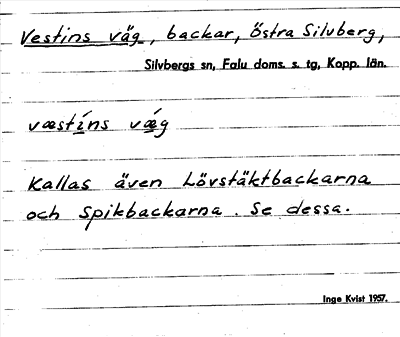 Vestins väg, backar, Östra Silvberg,
Silvbergs sn, Falu doms. s. tg, Kopp. län.
væstíns vǽg
Kallas även Lövstäktbackarna
och Spikbackarna. Se dessa.
Inge Kvist 1957.